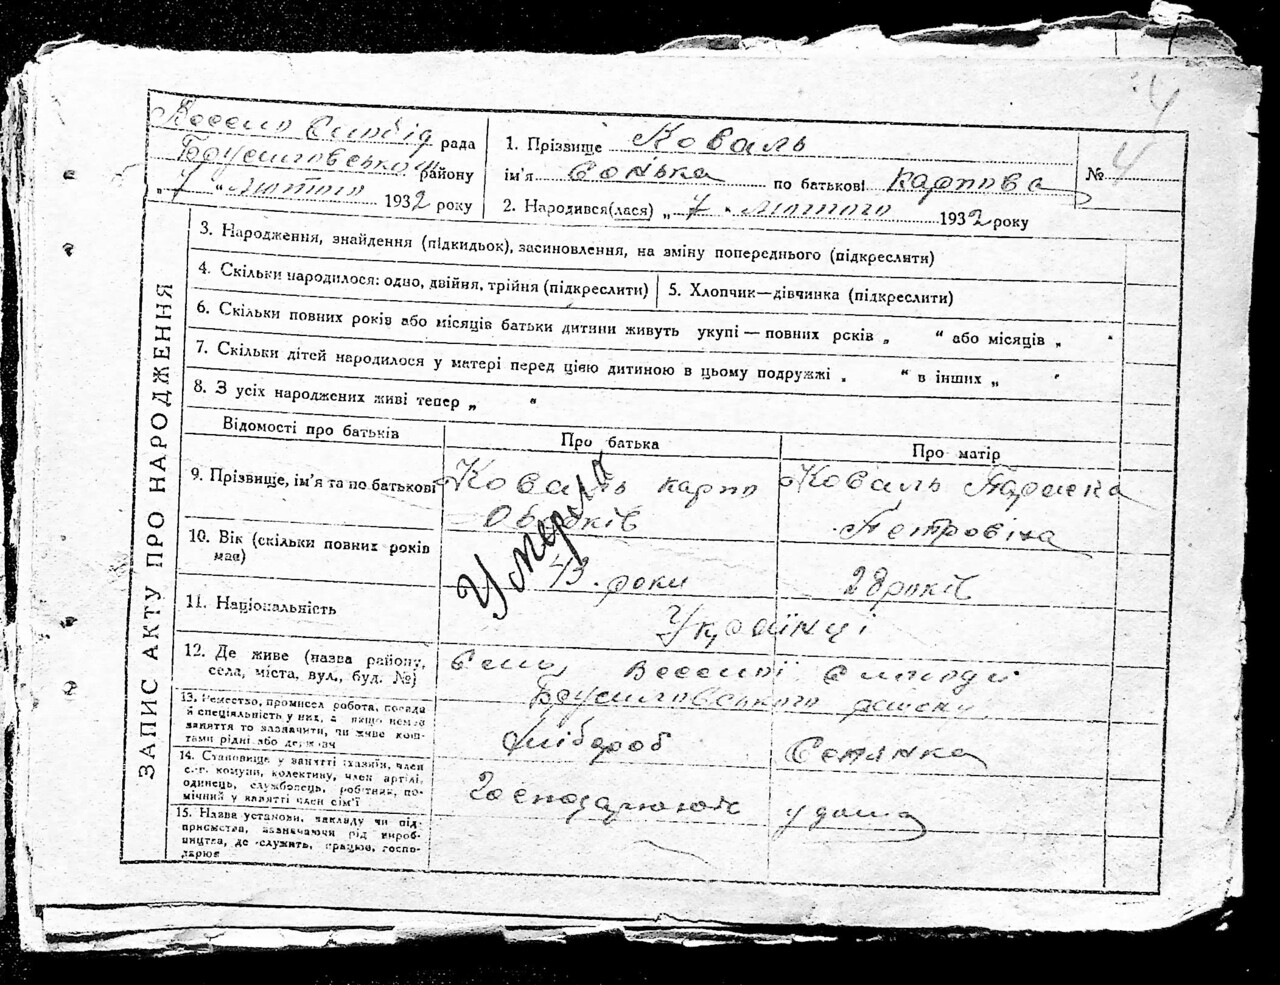 4
рада
Брусиловського району
„ 7 “ лютого 1932 року
1. Прізвище Коваль
ім'я Сонька по батькові Карпова
2. Народився(лася) „ 7 “ лютого 1932 року
№ 4
ЗАПИС АКТУ ПРО НАРОДЖЕННЯ
3. Народження, знайдення (підкидьок), засиновлення, на зміну попереднього (підкреслити)
4. Скільки народилося: одно, двійня, трійня (підкреслити)
5. Хлопчик—дівчинка (підкреслити)
6. Скільки повних років або місяців батьки дитини живуть укупі — повних років „ “ або місяців „ “
7. Скільки дітей народилося у матері перед цією дитиною в цьому подружжі „ “ в інших „ “
8. З усіх народжених живі тепер „ “
Відомості про батьків
Про батька
Про матір
9. Прізвище, ім'я та по батькові
Коваль Карпо
Коваль Параска
Петровіна
Умерла
10. Вік (скільки повних років
має)
43 роки
28 років
11. Національність
Українці
12. Де живе (назва району,
села, міста, вул., буд. №)
Село
Брусиловського району
13. Ремество, промисел робота, посада
й спеціальність у них, а якщо немає
заняття то зазначити, чи живе кош-
тами рідні або держави
хлібороб
Селянка
14. Становище у занятті (хазяїн, член
с.-г. комуни, колективу, член артілі,
одинець, службовець, робітник, по-
мічний у занятті член сім'ї
Господарюють
у дома
15. Назва установи, закладу чи під-
приємства, зазначаючи рід вироб-
ництва, де служить, працює, госпо-
дарює